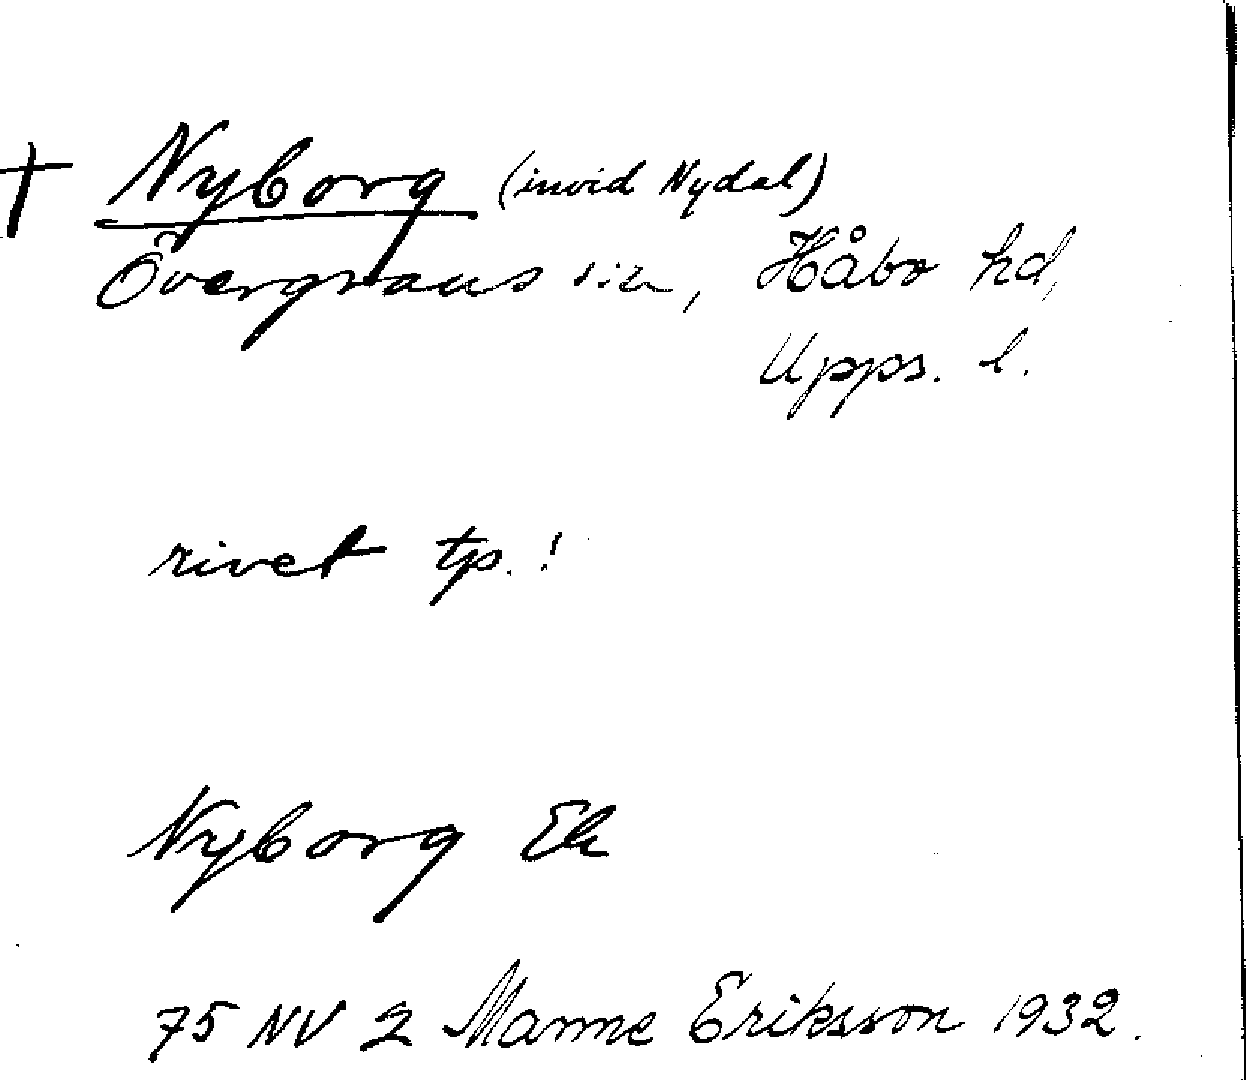 † Nyborg (invid Nydal)
Övergrans sn, Håbo hd,
Upps. l.
rivet tp.!
Nyborg Ek
75 NV 2 Manne Eriksson 1932.